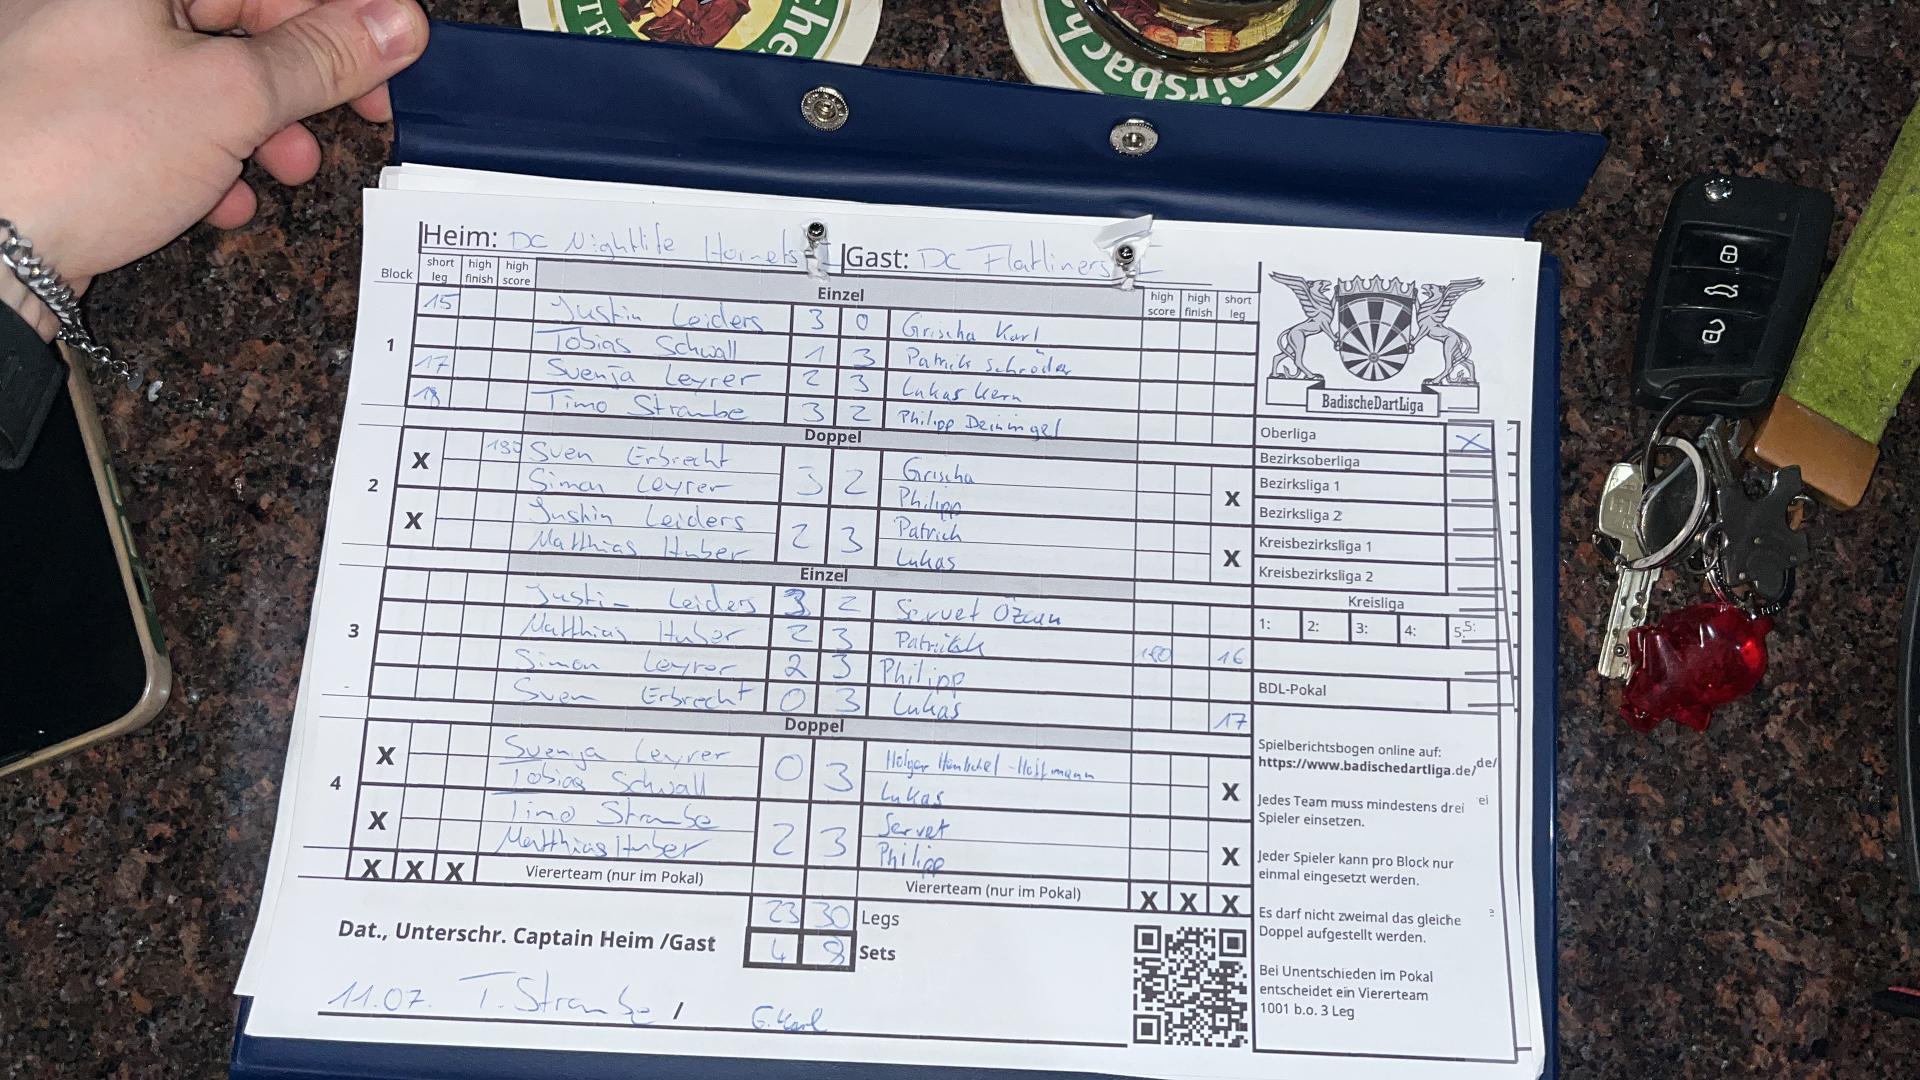 Heim: DC Nightlife Hornets Gast: DC Flatliners
Block short leg high finish high score Einzel high score high finish short leg
1
15 Justin Leiders 3 0 Grischa Karl
Tobias Schwall 1 3 Patrick Schröder
17 Svenja Leyrer 2 3 Lukas Kern
Timo Straube 3 2 Philipp
Doppel
2
X Sven Erbrecht 3 2 Grischa X
Simon Leyrer Philipp
X Justin Leiders 2 3 Patrich X
Matthias Huber Lukas
Einzel
3
Justin Leiders 3 2 Servet Özcan
Matthias Huber 2 3 Patrick 180 16
Simon Leyrer 2 3 Philipp
Sven Erbrecht 0 3 Lukas 17
Doppel
4
X Svenja Leyrer 0 3 Holger X
Tobias Schwall Lukas
X Timo Straube 2 3 Servet X
Matthias Huber Philipp
X X X Viererteam (nur im Pokal) Viererteam (nur im Pokal) X X X
23 30 Legs
4 8 Sets
Dat., Unterschr. Captain Heim /Gast
11.07. T. Straube / G. Karl
BadischeDartLiga
Oberliga X
Bezirksoberliga
Bezirksliga 1
Bezirksliga 2
Kreisbezirksliga 1
Kreisbezirksliga 2
Kreisliga
1: 2: 3: 4: 5: 5:
BDL-Pokal
Spielberichtsbogen online auf:
https://www.badischedartliga.de/ de/
Jedes Team muss mindestens drei ei
Spieler einsetzen.
Jeder Spieler kann pro Block nur
einmal eingesetzt werden.
Es darf nicht zweimal das gleiche
Doppel aufgestellt werden.
Bei Unentschieden im Pokal
entscheidet ein Viererteam
1001 b.o. 3 Leg